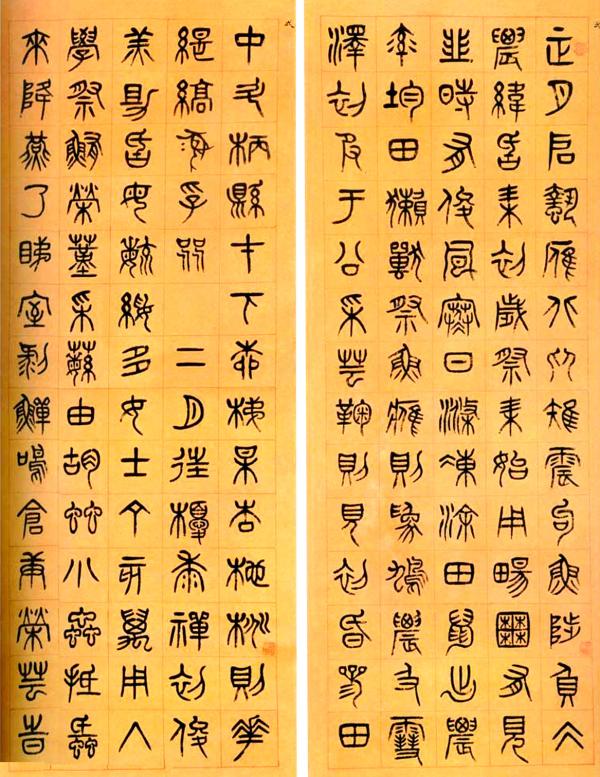 正月启蟄雁北鄉雉震呴魚陟負冰
農緯厥耒初歲祭耒始用暢囿有見
韭時有俊風寒日滌凍塗田鼠出農
率均田獺獸祭魚鷹則為鳩農及雪
澤初服于公采芸鞠則見初昏參田
中斗柄縣才下柳梯某杏杝桃則華
緹縞孚粥二月往耰黍禪初俊
羔助厥母粥綏多女士丁亥萬用入
學祭鮪榮菫采蘩由胡䖵小蟲抵蚳
來降燕乃睇室剝鱓鳴倉庚榮芸時